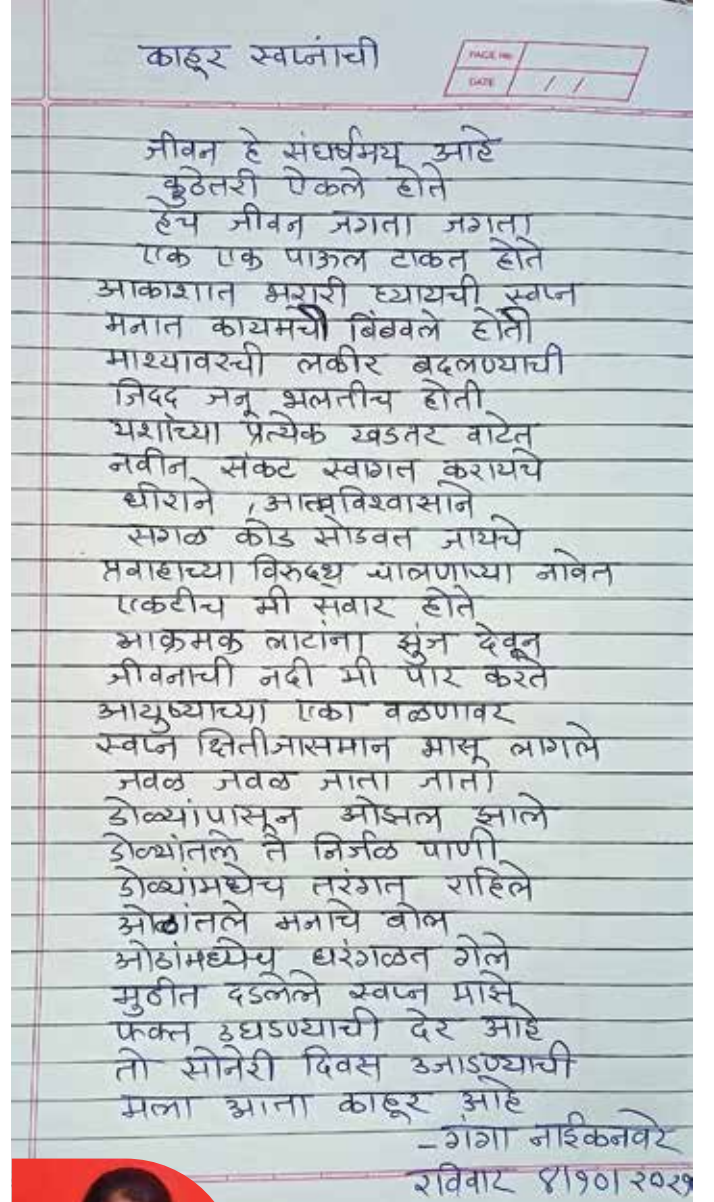 काहूर स्वप्नांची
PAGE No.
DATE / /
जीवन हे संघर्षमय आहे
कुठेतरी ऐकले होते
हेच जीवन जगता जगता
एक एक पाऊल टाकत होते
आकाशात भरारी घ्यायची स्वप्न
मनात कायमची बिंबवले होती
माथ्यावरची लकीर बदलण्याची
जिद्द जनू भलतीच होती
यशाच्या प्रत्येक खडतर वाटेत
नवीन संकट स्वागत करायचे
धीराने , आत्मविश्वासाने
सगळ कोड सोडवत जायचे
प्रवाहाच्या विरुद्ध चालणाऱ्या नावेत
एकटीच मी सवार होते
आक्रमक लाटांना झुंज देवून
जीवनाची नदी मी पार करते
आयुष्याच्या एका वळणावर
स्वप्न क्षितीजासमान भासू लागले
जवळ जवळ जाता जाता
डोळ्यांपासून ओझल झाले
डोळ्यांतले ते निर्जळ पाणी
डोळ्यांमधेच तरंगत राहिले
ओठांतले मनाचे बोल
ओठांमध्येच घरंगळत गेले
मुठीत दडलेले स्वप्न माझे
फक्त उघडण्याची देर आहे
तो सोनेरी दिवस उजाडण्याची
मला आता काहूर आहे
- गंगा नाईकनवरे
रविवार ४/१०/२०२१